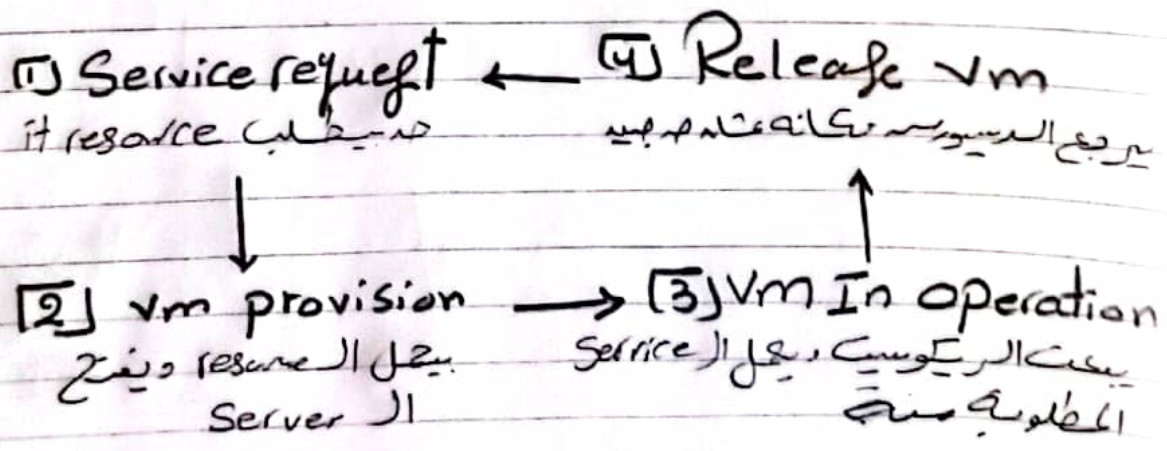 [1] Service request ← [4] Release vm
حد بيطلب it resource
يرجع الريسورس
↓ ↑
[2] vm provision → [3] Vm In operation
بيحل ال resourse ويفتح
ال Server
يبعت الريكوست ويحل ال Service
المطلوبة منه